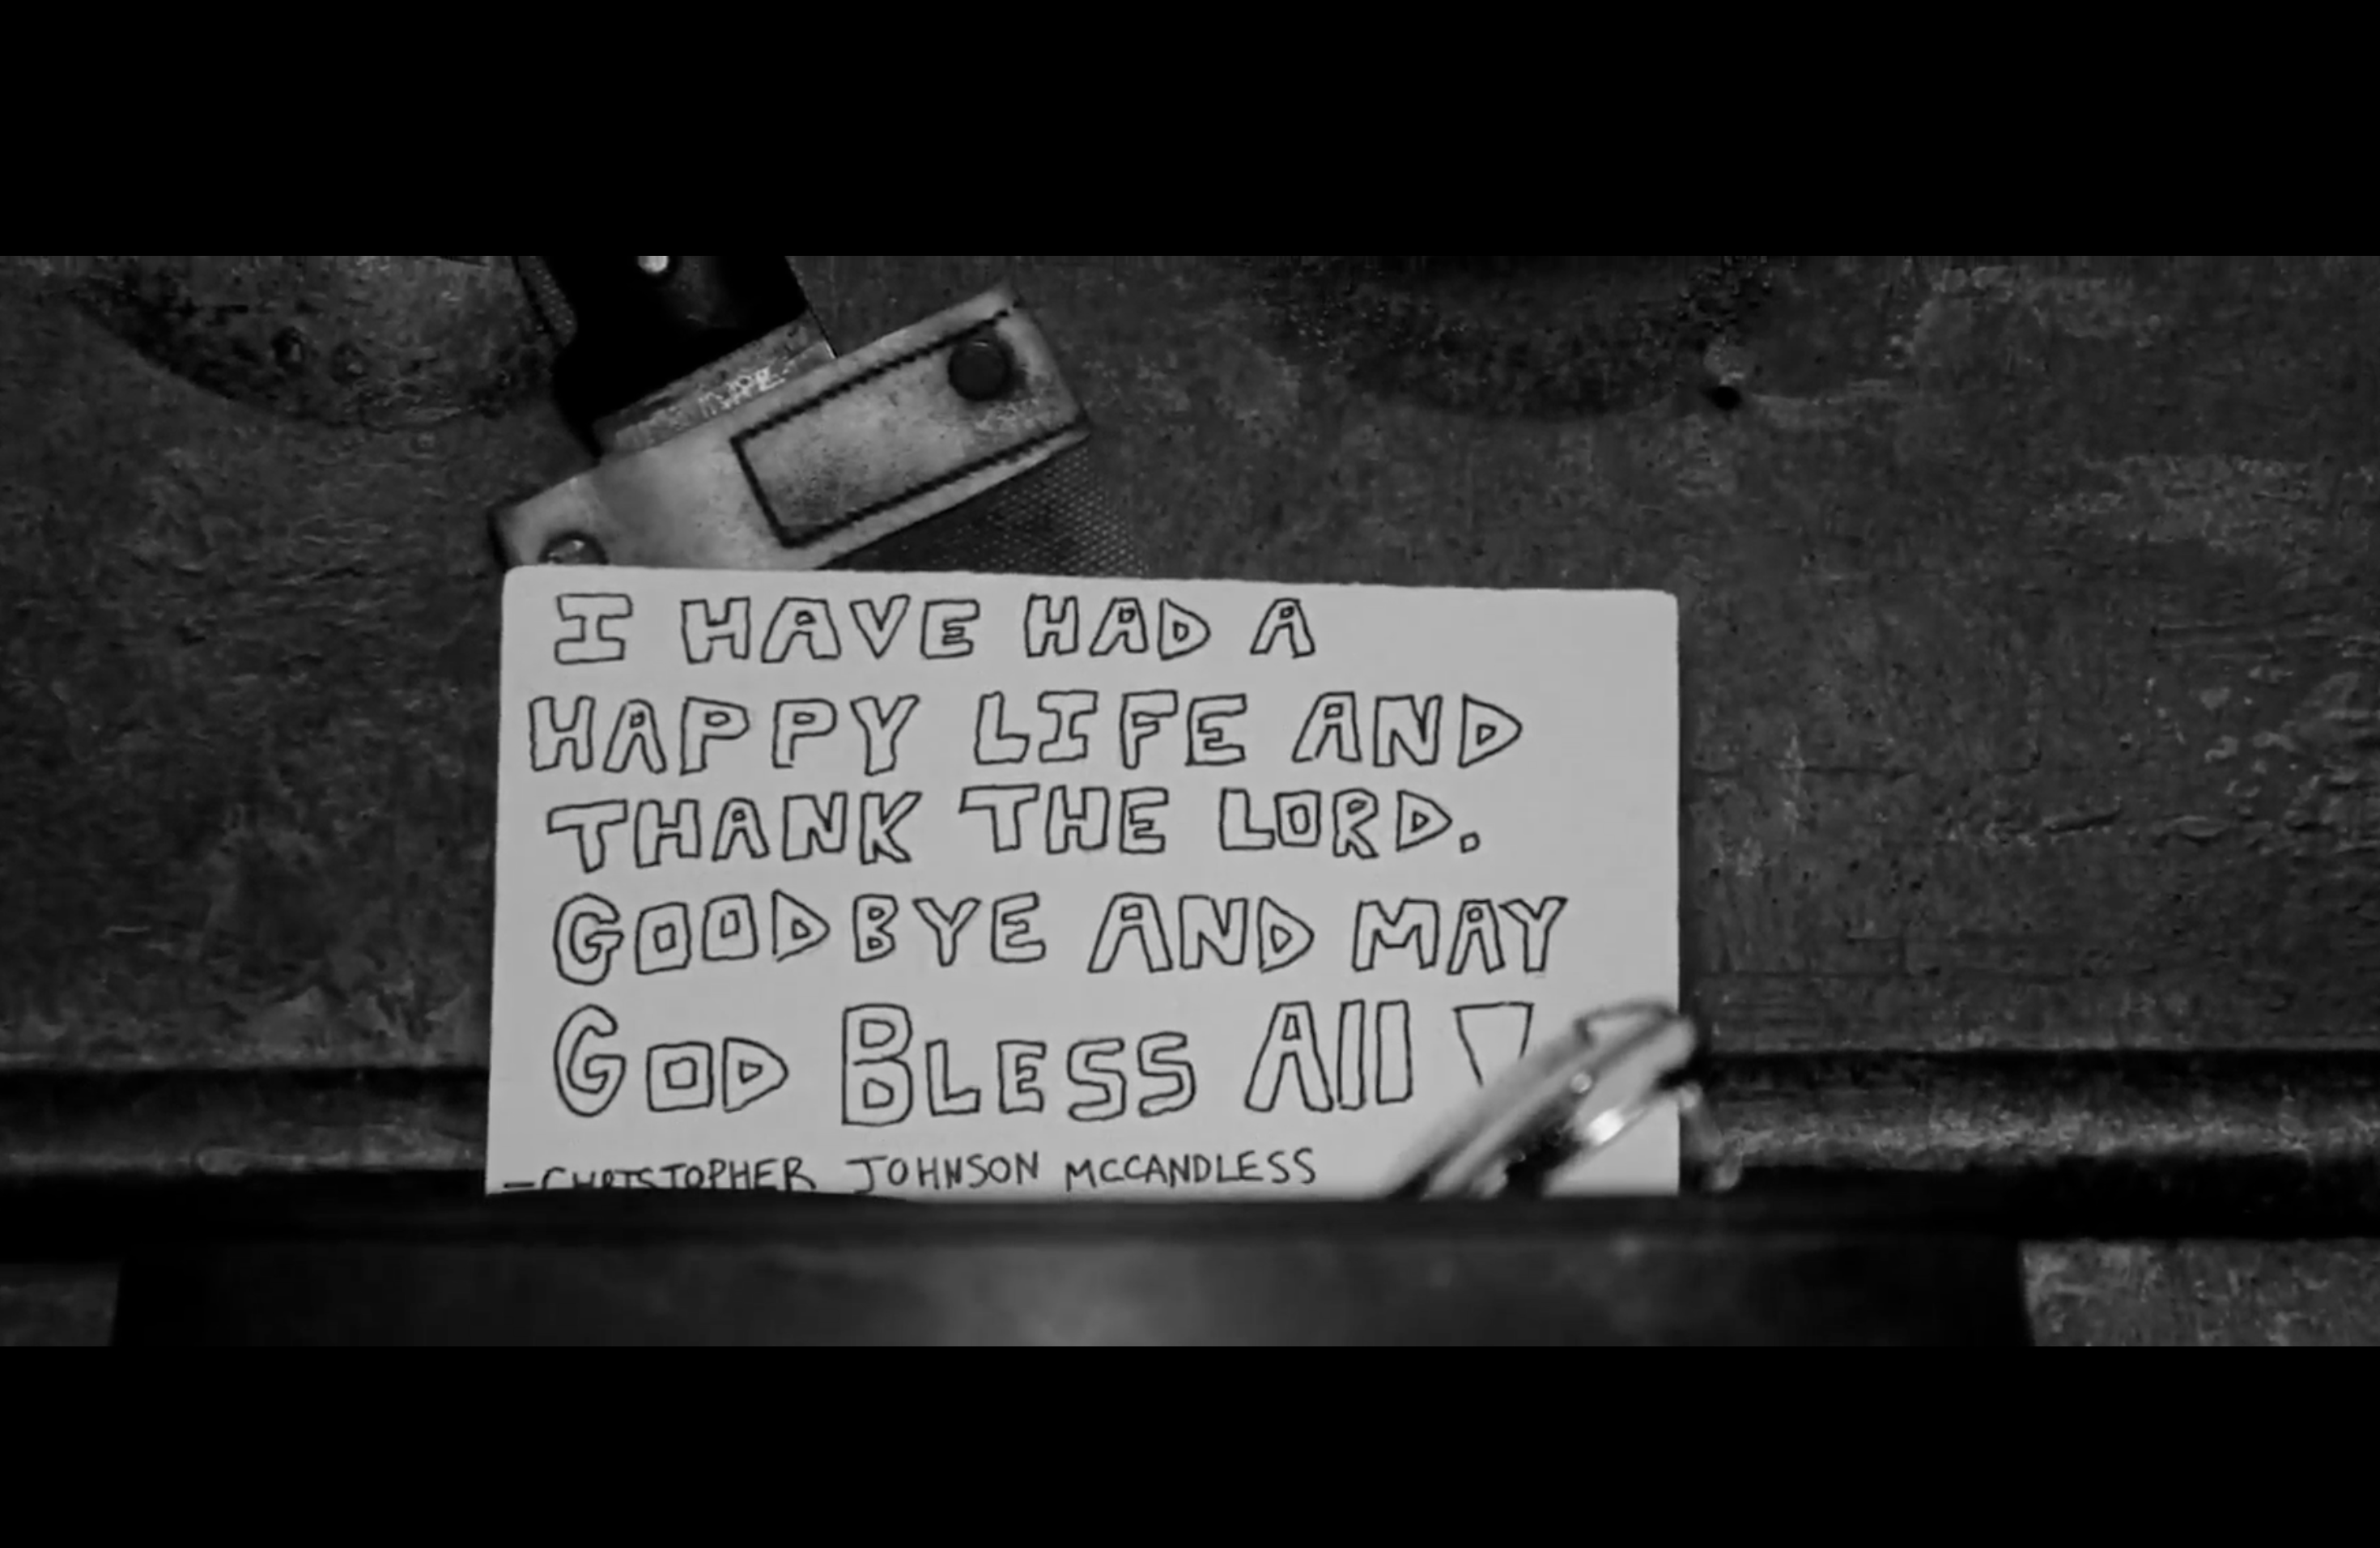 I HAVE HAD A
HAPPY LIFE AND
THANK THE LORD.
GOODBYE AND MAY
GOD BLESS All !
-CHRISTOPHER JOHNSON MCCANDLESS